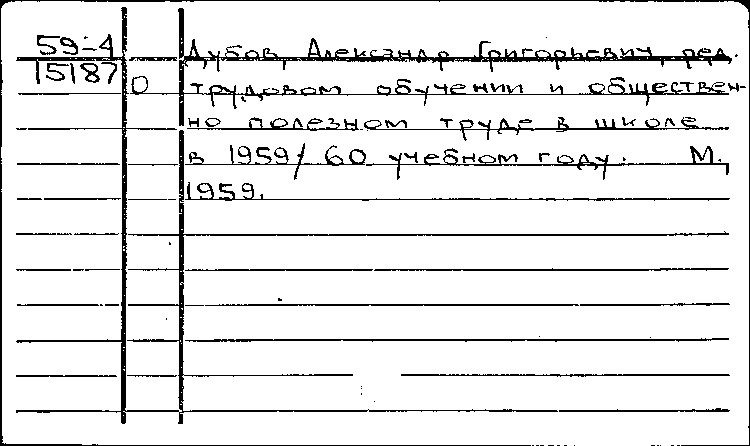 59-4 Дубов, Александр Григорьевич, ред.
15187 О трудовом обучении и обществен-
но полезном труде в школе
в 1959/60 учебном году. М.,
1959.